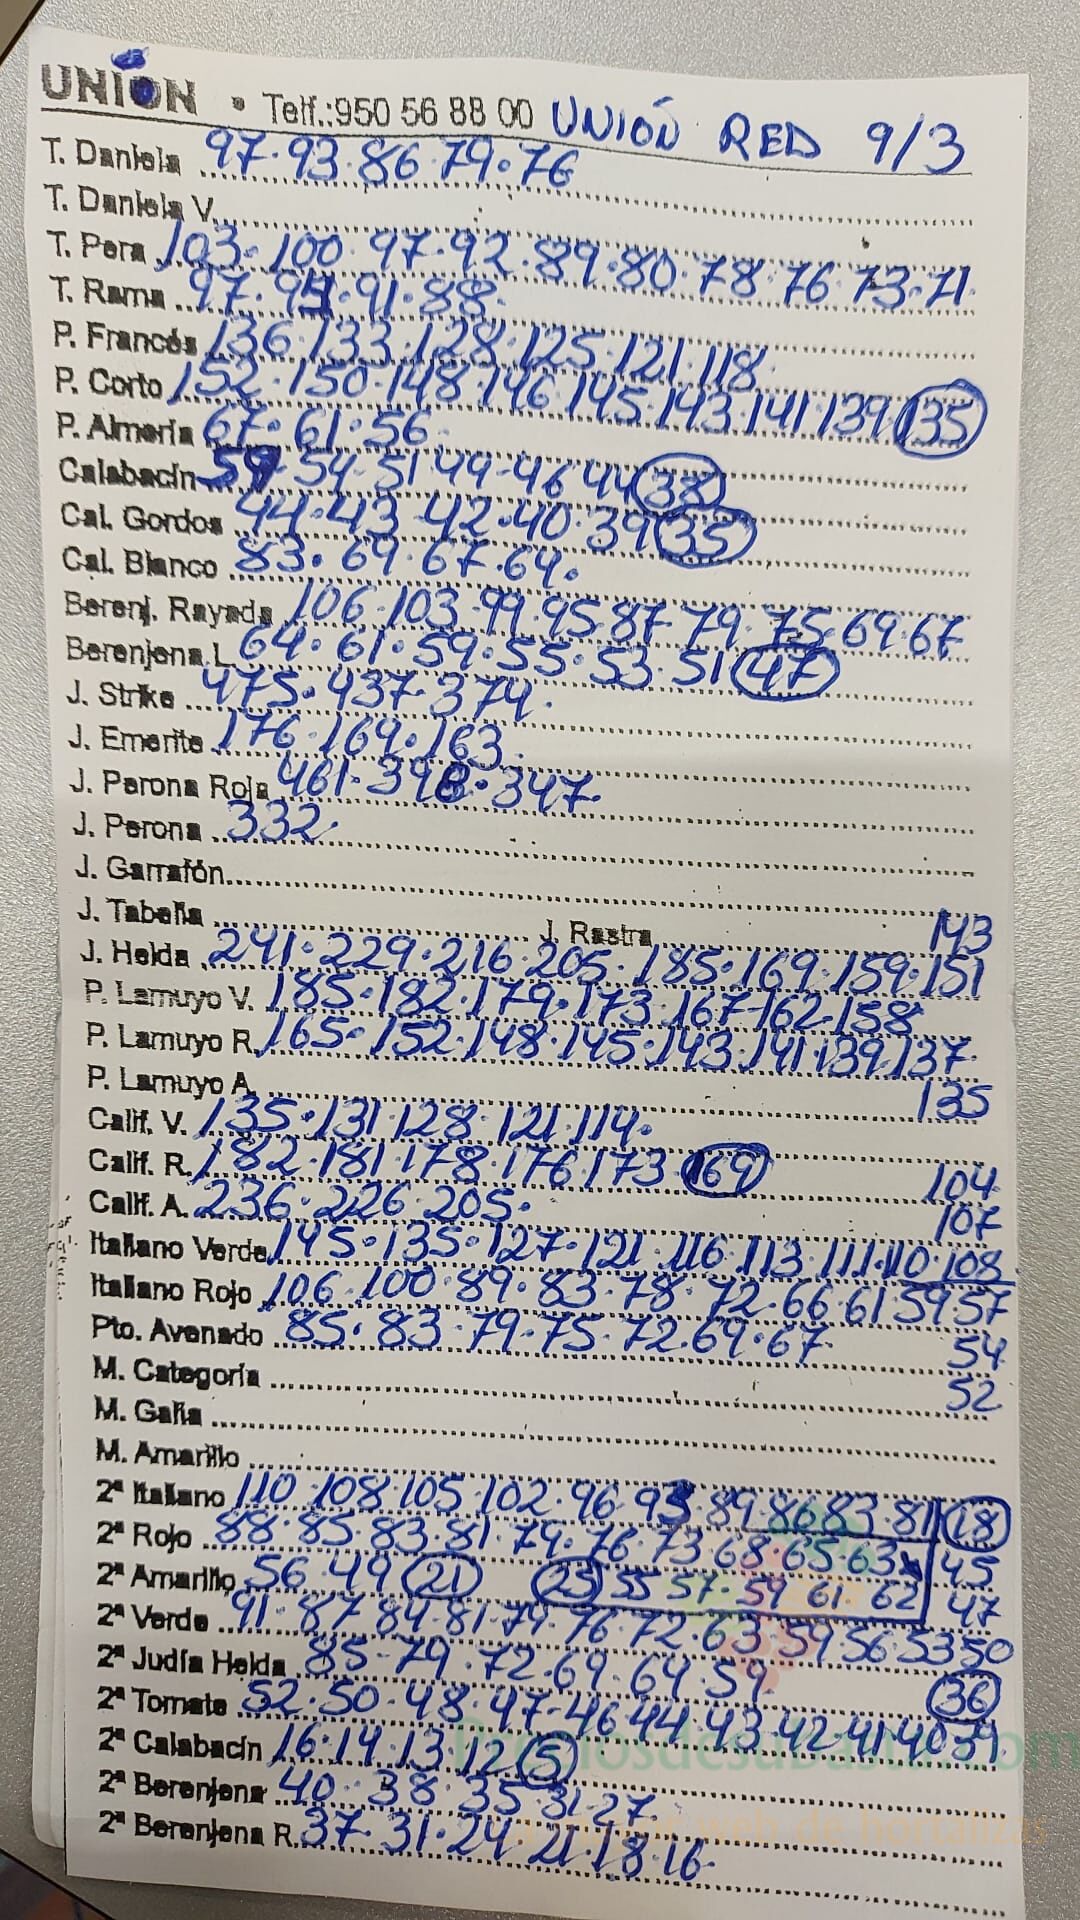 UNIÓN • Telf.:950 56 88 00 UNIÓN RED 9/3
T. Daniela 97·93·86·79·76
T. Daniela V.
T. Pera 103·100·97·92·89·80·78·76·73·71
T. Rama 97·94·91·88
P. Francés 136·133·128·125·121·118
P. Corto 152·150·148·146·145·143·141·139 135
P. Almería 67·61·56
Calabacín 59·54·51·49·46·44 38
Cal. Gordos 44·43·42·40·39 35
Cal. Blanco 83·69·67·64
Berenj. Rayada 106·103·99·95·87·79·75·69·67
Berenjena L. 64·61·59·55·53·51 47
J. Strike 475·437·374
J. Emerite 176·169·163
J. Perona Roja 461·398·347
J. Perona 332
J. Garrafón
J. Tabella J. Rastra 143
J. Helda 241·229·216·205·185·169·159·151
P. Lamuyo V. 185·182·179·173·167·162·158
P. Lamuyo R. 165·152·148·145·143·141·139·137
P. Lamuyo A. 135
Calif. V. 135·131·128·121·114
Calif. R. 182·181·178·176·173 169 104
Calif. A. 236·226·205 107
Italiano Verde 145·135·127·121·116·113·111·110·108
Italiano Rojo 106·100·89·83·78·72·66·61·59·57
Pto. Avenado 85·83·79·75·72·69·67 54
M. Categoría 52
M. Galia
M. Amarillo
2ª Italiano 110·108·105·102·96·93·89·86·83·81 18
2ª Rojo 88·85·83·81·79·76·73·68·65·63 45
2ª Amarillo 56·49 21 25 55 57·59 61·62 47
2ª Verde 91·87·84·81·79·76·72·63·59·56·53·50
2ª Judía Helda 85·79·72·69·64·59 36
2ª Tomate 52·50·48·47·46·44·43·42·41·40·39
2ª Calabacín 16·14·13·12 5
2ª Berenjena 40·38·35·31·27
2ª Berenjena R. 37·31·24·21·18·16
Preciosdesubasta.com
web de hortalizas